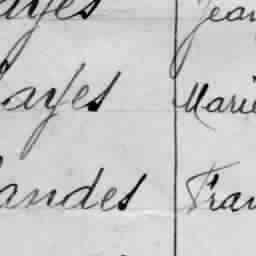 ayes Jean
ayes Marie
andes Fran